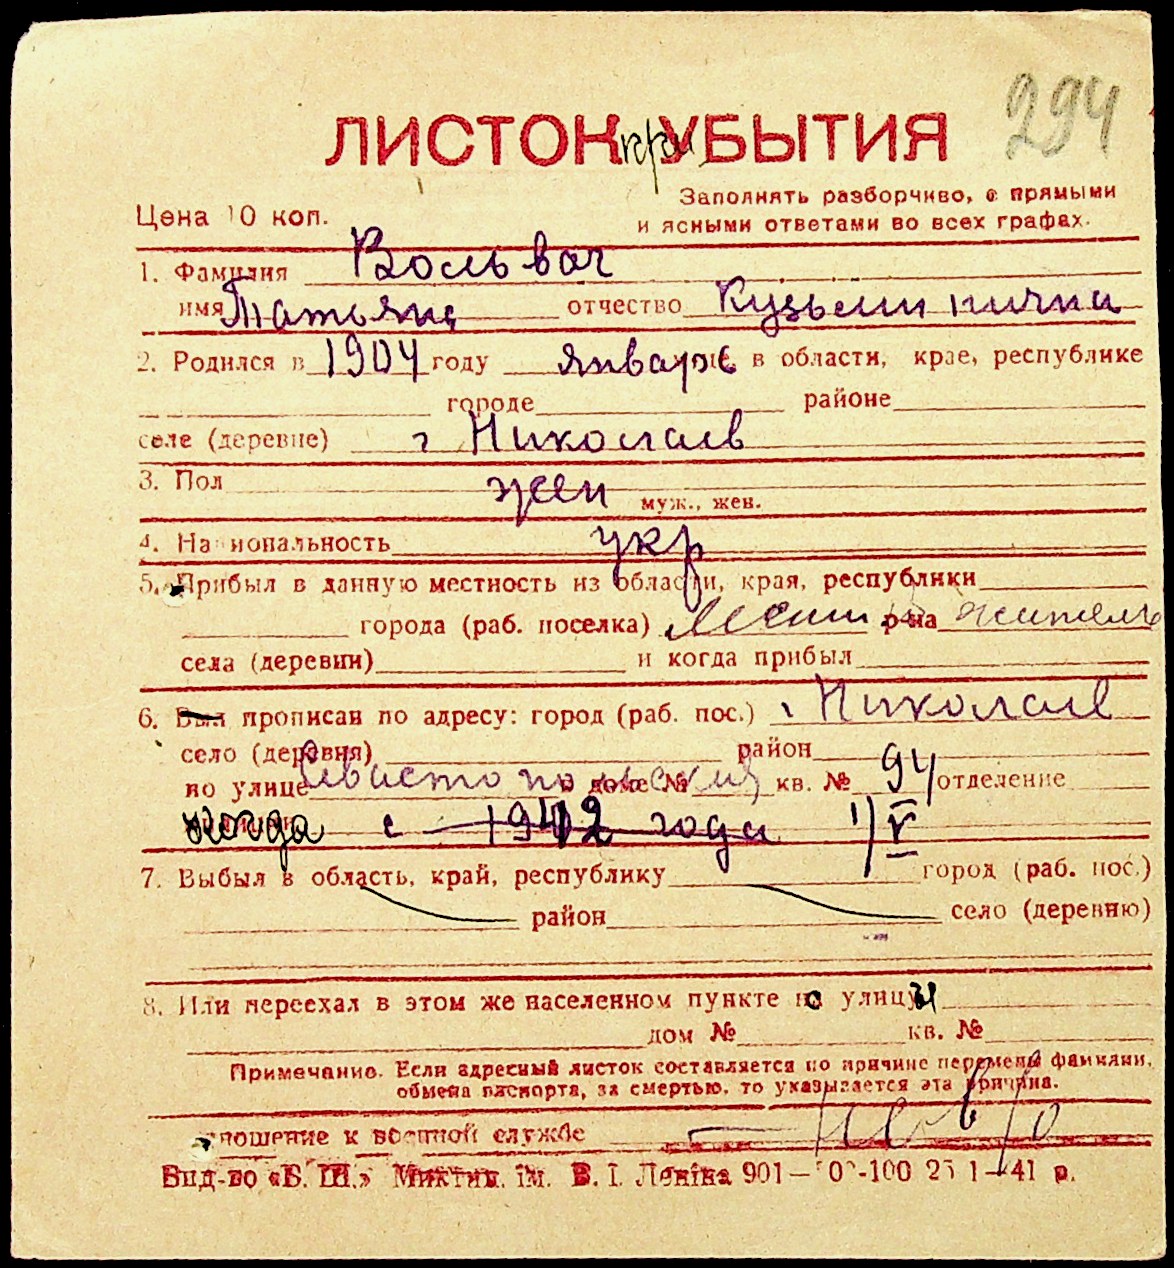 294
ЛИСТОК при УБЫТИЯ
Цена 10 коп.
Заполнять разборчиво, с прямыми
и ясными ответами во всех графах.
1. Фамилия Вольвач
имя Татьяна отчество Кузьминична
2. Родился в 1904 году январе м-це, в области, крае, республике
городе районе
селе (деревне) г Николаев
3. Пол жен муж., жен.
4. Национальность укр
5. Прибыл в данную местность из области, края, республики
города (раб. поселка) р-на житель
села (деревни) и когда прибыл
6. Был прописан по адресу: город (раб. пос.) г. Николаев
село (деревня) район
по улице Севастопольская доме № кв. № 94 отделение
когда с 1942 года 1/V
7. Выбыл в область, край, республику город (раб. пос.)
район село (деревню)
8. Или переехал в этом же населенном пункте на улицу
дом № кв. №
Примечание. Если адресный листок составляется по причине перемены фамилии,
обмена паспорта, за смертью, то указывается эта причина.
Отношение к военной службе
Вид-во «Б. Ш.» Миктип. ім. В. І. Леніна 901— -100 25 1—41 р.